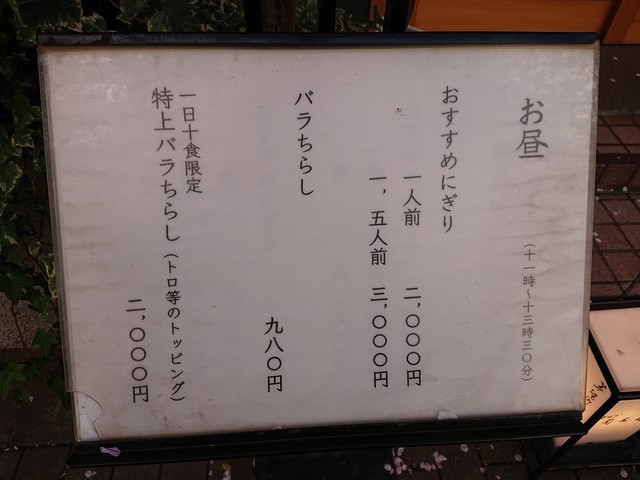 お昼 （十一時～十三時三〇分）
おすすめにぎり
一人前 二,〇〇〇円
一,五人前 三,〇〇〇円
バラちらし
九八〇円
一日十食限定
特上バラちらし（トロ等のトッピング）
二,〇〇〇円